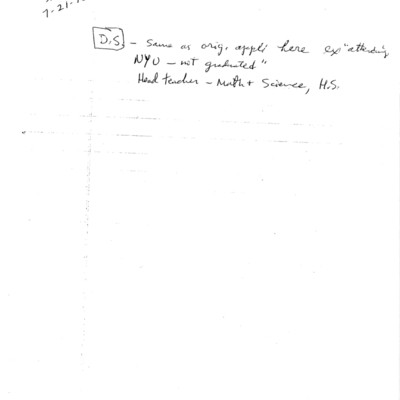 7-21-
D.S. - same as orig. appli here ex "attending
NYU - not graduated"
Head teacher - Math + Science, H.S.